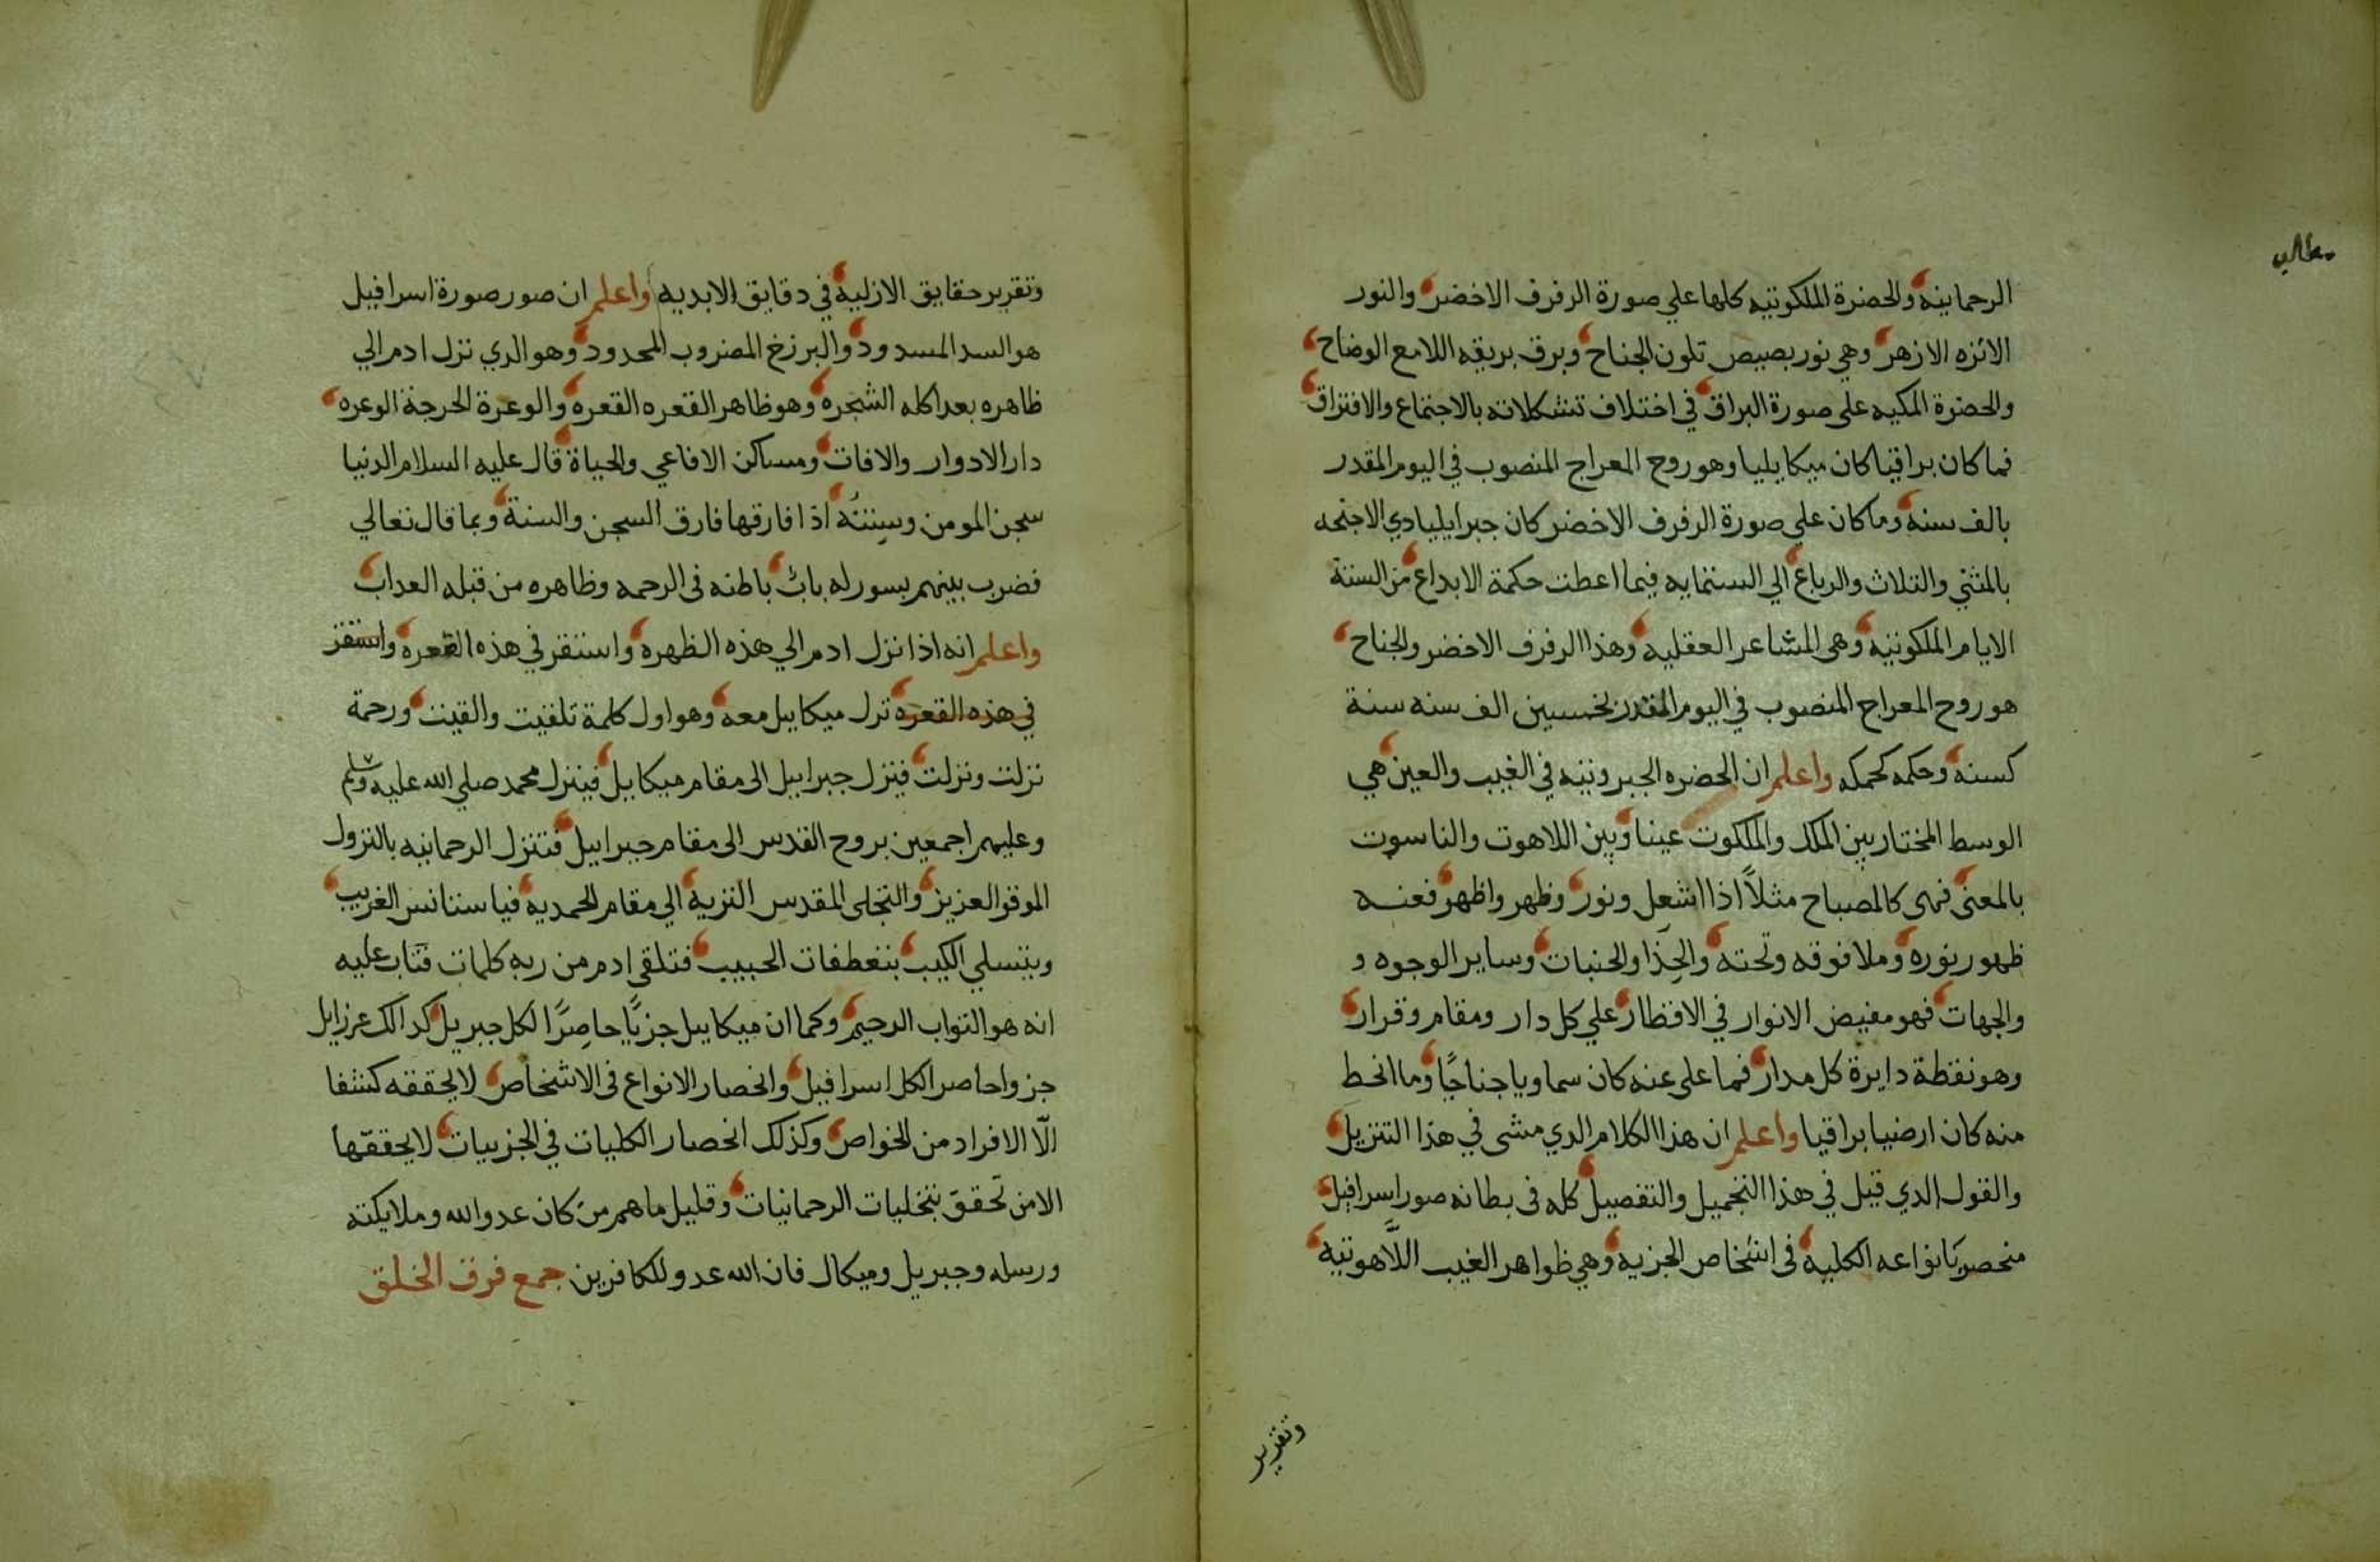 الرحمانيه والحضرة الملكوتيه كلها علي صورة الرفرف الاخضر والنور
الانزه الازهر وهي نور بصيص تلون الجناح وبرق بريقه اللامع الوضاح
والحضرة المكيه على صورة البراق في اختلاف تشكلاته بالاجتماع والافتراق
فما كان براقيا كان ميكايليا وهو روح المعراج المنصوب في اليوم المقدر
بالف سنه وما كان علي صورة الرفرف الاخضر كان جبرايليا دي الاجنحه
بالمثني والثلاث والرباع الي الستمايه فيما اعطت حكمة الابداع من السنة
الايام الملكوتيه وهى المشاعر العقليه وهذا الرفرف الاخضر والجناح
هو روح المعراج المنصوب في اليوم المقدر بخمسين الف سنه سنة
كسنه وحكمه كحمكه واعلم ان الحضره الجبروتيه في الغيب والعين هي
الوسط المختار بين الملك والملكوت عينا وبين اللاهوت والناسوت
بالمعنى فهى كالمصباح مثلاً اذا اشعل ونور وظهر واظهر فعنه
ظهور نوره وملا فوقه وتحته والحذا والجنبات وساير الوجوه و
والجهات فهو مفيض الانوار في الاقطار علي كل دار ومقام وقرار
وهو نقطة دايرة كل مدار فما على عنه كان سماويا جناحًا وما انحط
منه كان ارضيا براقيا واعلم ان هذا الكلام الدي مشى في هذا التنزيل
والقول الدي قيل في هذا التجميل والتفصيل كله فى بطانه صور اسرافيل
منحصر بانواعه الكليه فى اشخاص الجزيه وهي ظواهر الغيب اللّاهوتيه
وتقرير
وتقرير حقايق الازليه في دقايق الابديه واعلم ان صور صورة اسرافيل
هو السد المسدود والبرزخ المضروب المحدود وهو الدي نزل ادم الي
ظاهره بعد اكله الشجره وهو ظاهر القعره القعره والوعرة الحرجة الوعره
دار الادوار والافات ومساكن الافاعي والحياة قال عليه السلام الدنيا
سجن المومن وسنته اذا فارقها فارق السجن والسنة وبما قال تعالي
فضرب بينهم بسور له باب باطنه فى الرحمه وظاهره من قبله العداب
واعلم انه اذا نزل ادم الي هذه الظهره واستقر في هذه القعره واستقر
في هذه القعره نزل ميكاييل معه وهو اول كلمة تلقيت والقيت ورحمة
نزلت ونزلت فينزل جبراييل الى مقام ميكاييل فينزل محمد صلي الله عليه وسلم
وعليهم اجمعين بروح القدس الى مقام جبراييل فتنزل الرحمانيه بالنزول
الموقو العزيز والتجلى المقدس النزيه الي مقام المحمديه فيا ستانس الغريب
ويتسلي الكيب بتعطفات الحبيب فتلقى ادم من ربه كلمات فتاب عليه
انه هو التواب الرحيم وكما ان ميكاييل جزيًا حاصرًا لكل جبريل كدالك عزرايل
جزوا حاصرا لكل اسرافيل وانحصار الانواع فى الاشخاص لا يحققه كشفا
الّا الافراد من الخواص وكذلك انحصار الكليات في الجزييات لا يحققّها
الا من تحقق بتخليات الرحمانيات وقليل ما هم من كان عدو الله وملايكته
ورسله وجبريل وميكال فان الله عدو للكافرين جمع فرق الخلق